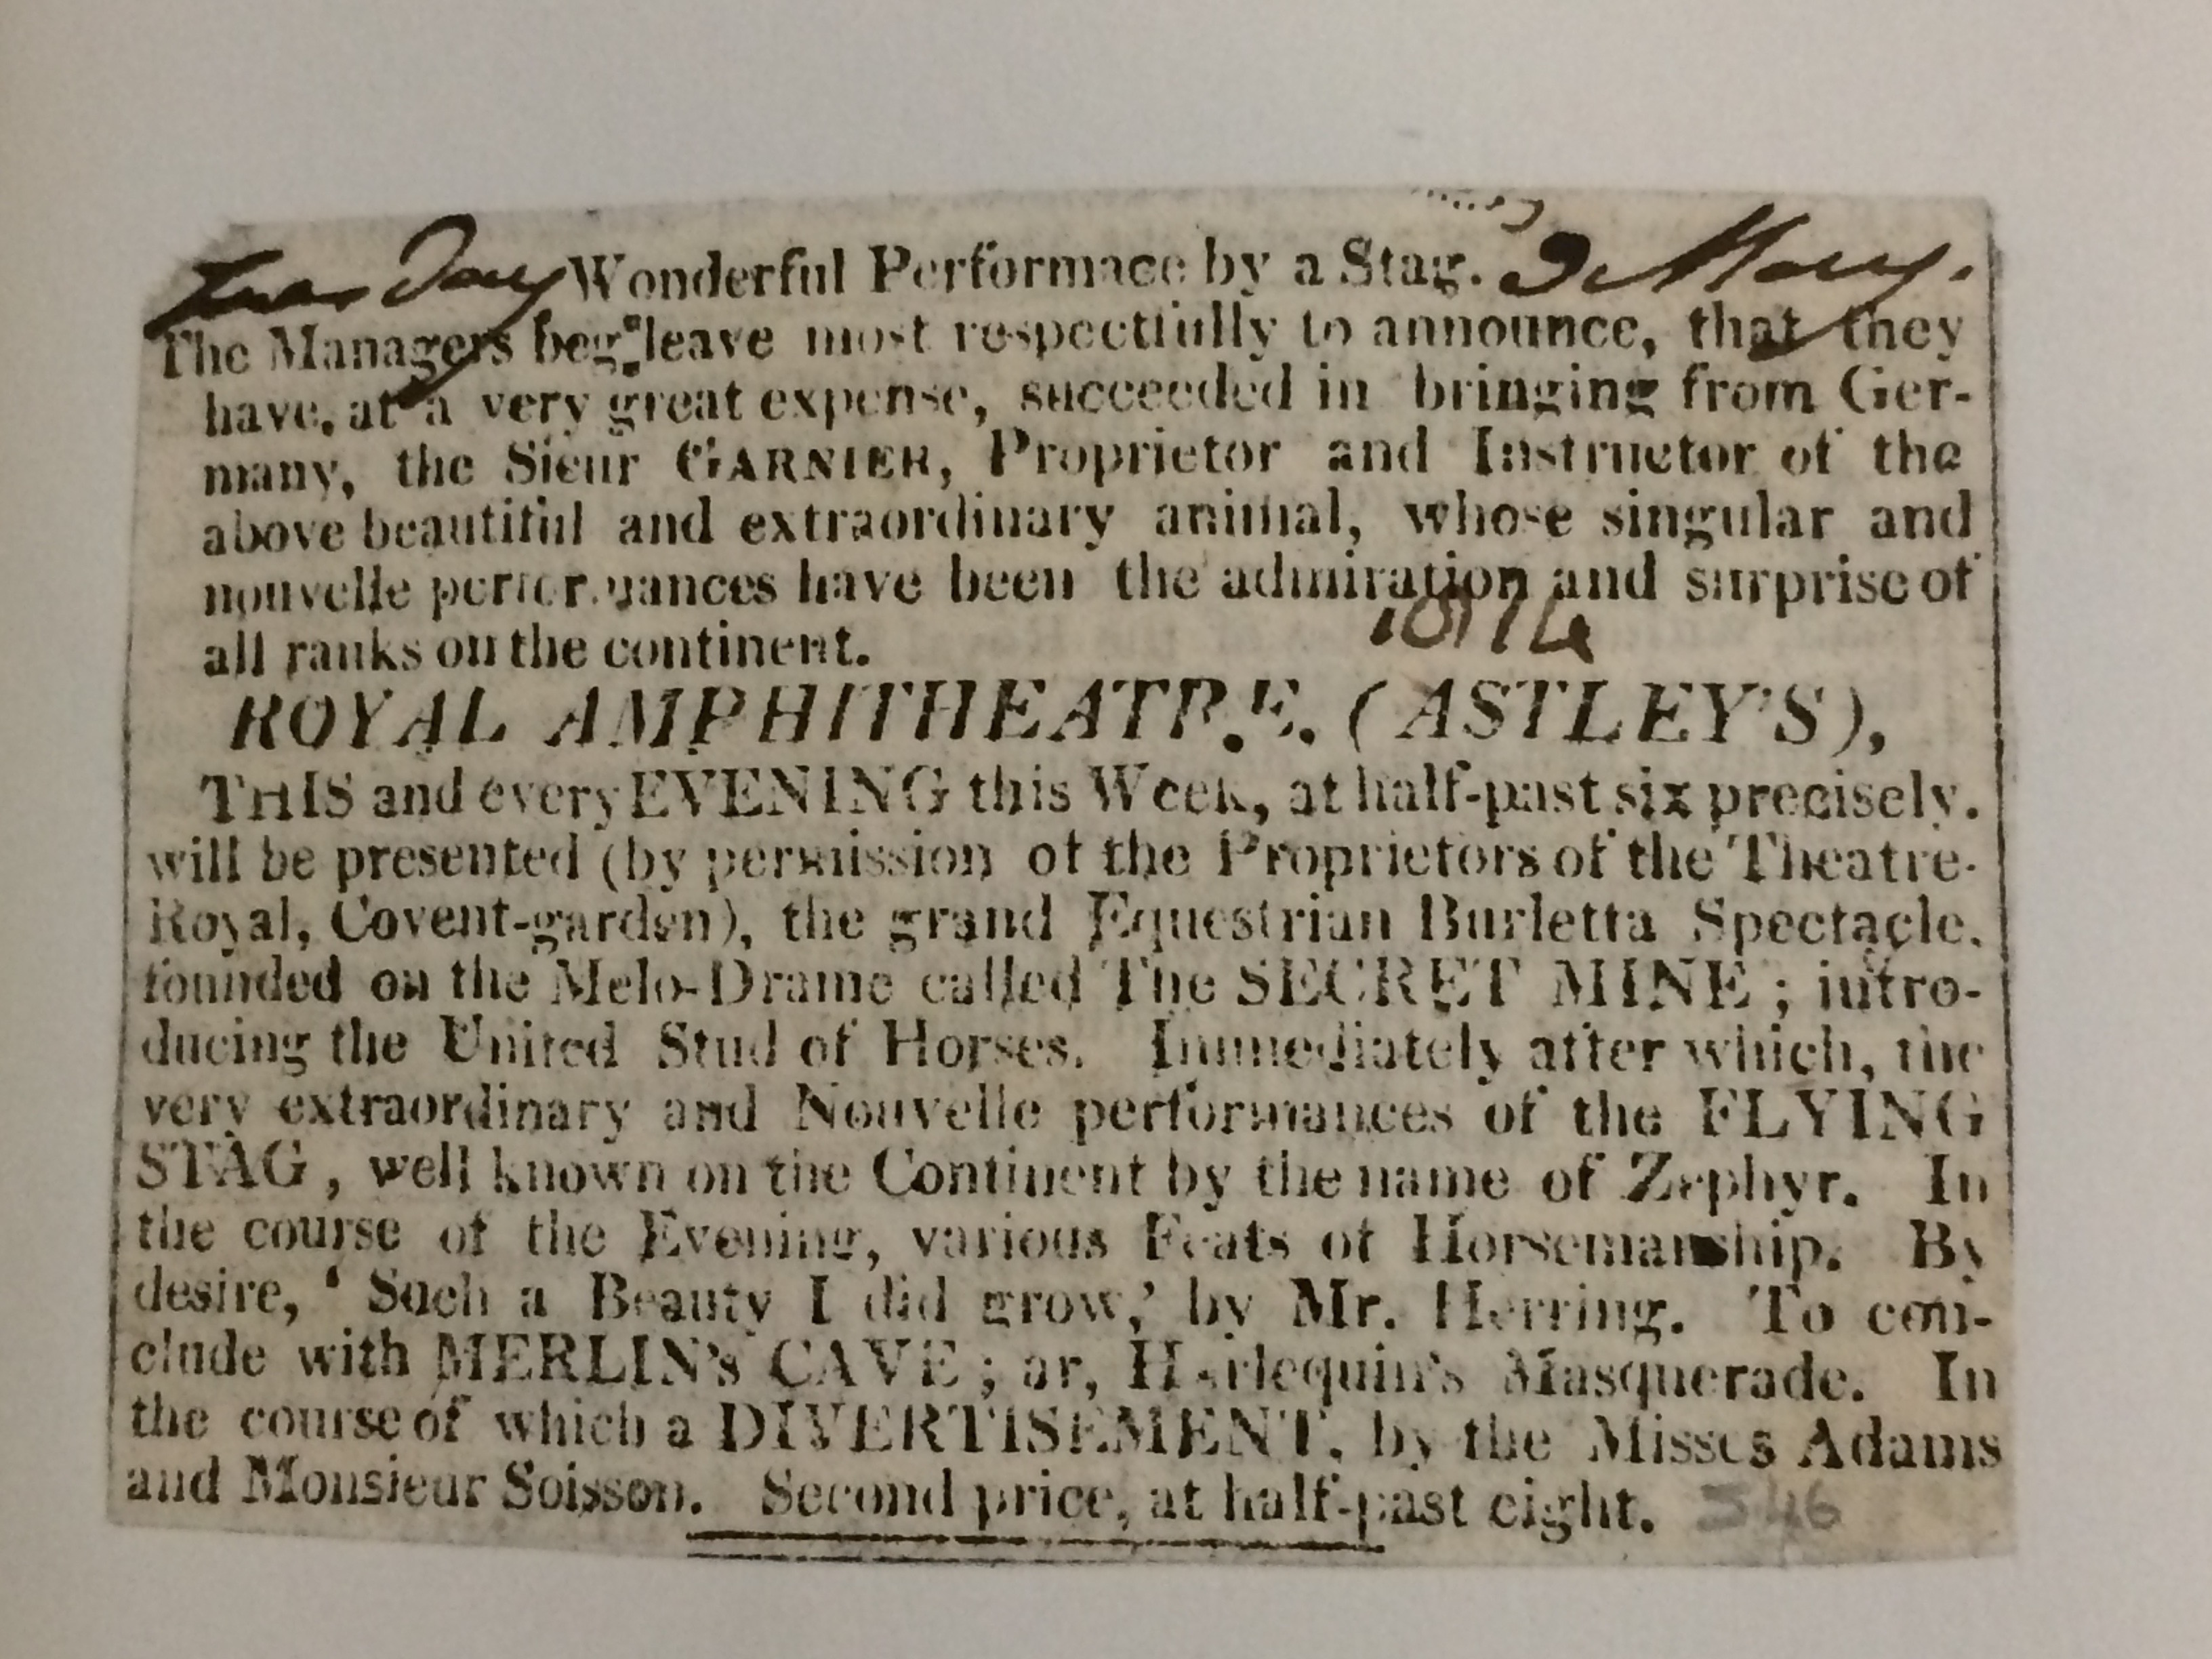 Tuesday Wonderful Performace by a Stag. 3 May.
The Managers beg leave most respectfully to announce, that they
have, at a very great expense, succeeded in bringing from Ger-
many, the Sieur GARNIER, Proprietor and Instructor of the
above beautiful and extraordinary animal, whose singular and
nouvelle performances have been the admiration and surprise of
all ranks on the continent.
ROYAL AMPHITHEATRE. (ASTLEY'S),
THIS and every EVENING this Week, at half-past six precisely.
will be presented (by permission of the Proprietors of the Theatre-
Royal, Covent-garden), the grand Equestrian Burletta Spectacle.
founded on the Melo-Drame called The SECRET MINE ; intro-
ducing the United Stud of Horses. Immediately after which, the
very extraordinary and Nouvelle performances of the FLYING
STAG, well known on the Continent by the name of Zephyr. In
the course of the Evening, various Feats of Horsemanship. By
desire, ‘ Such a Beauty I did grow,’ by Mr. Herring. To con-
clude with MERLIN's CAVE ; or, Harlequin's Masquerade. In
the course of which a DIVERTISEMENT, by the Misses Adams
and Monsieur Soisson. Second price, at half-past eight. 346